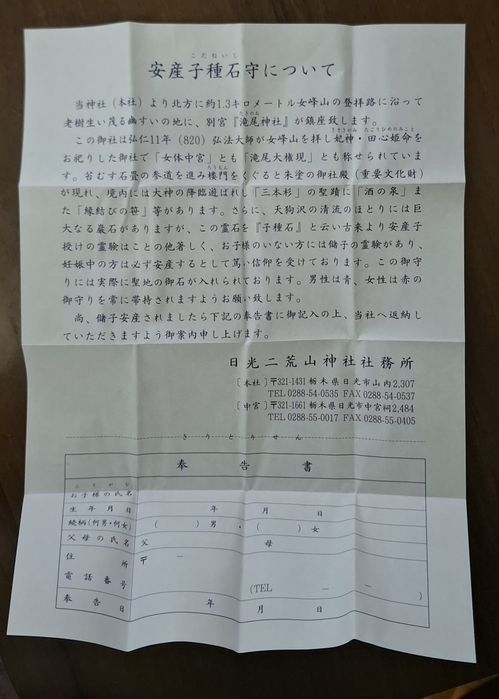 こだねいし
安産子種石守について
当神社(本社)より北方に約1.3キロメートル女峰山の登拝路に沿って
たきのお
老樹生い茂る幽すいの地に、別宮『滝尾神社』が鎮座致します。
きさきがみ たごりひめのみこと
この御社は弘仁11年(820)弘法大師が女峰山を拝し妃神・田心姫命を
お祀りした御社で「女体中宮」とも「滝尾大権現」とも称せられていま
ろうもん
す。苔むす石畳の参道を進み楼門をくぐると朱塗の御社殿(重要文化財)
が現れ、境内には大神の降臨遊ばれし「三本杉」の聖蹟に「酒の泉」ま
た「縁結びの笹」等があります。さらに、天狗沢の清流のほとりには巨
大なる巌石がありますが、この霊石を『子種石』と云い古来より安産子
授けの霊験はことの他著しく、お子様のいない方には儲子の霊験があり、
妊娠中の方は必ず安産するとして篤い信仰を受けております。この御守
りには実際に聖地の御石が入れられております。男性は青、女性は赤の
御守りを常に帯持されますようお願い致します。
尚、儲子安産されましたら下記の奉告書に御記入の上、当社へ返納し
ていただきますよう御案内申し上げます。
日光二荒山神社社務所
〔本社〕〒321-1431 栃木県日光市山内2,307
TEL 0288-54-0535 FAX 0288-54-0537
〔中宮〕〒321-1661 栃木県日光市中宮祠2,484
TEL 0288-55-0017 FAX 0288-55-0405
きりとりせん
奉告書
ふりがな
お子様の氏名
生年月日 年 月 日
続柄(何男・何女) ( )男・( )女
父母の氏名 父 母
住所 〒 -
電話番号 (TEL - - )
奉告日 年 月 日